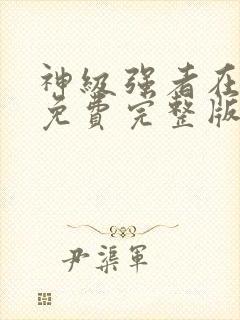 神级强者在
免费完整版
尹渠军